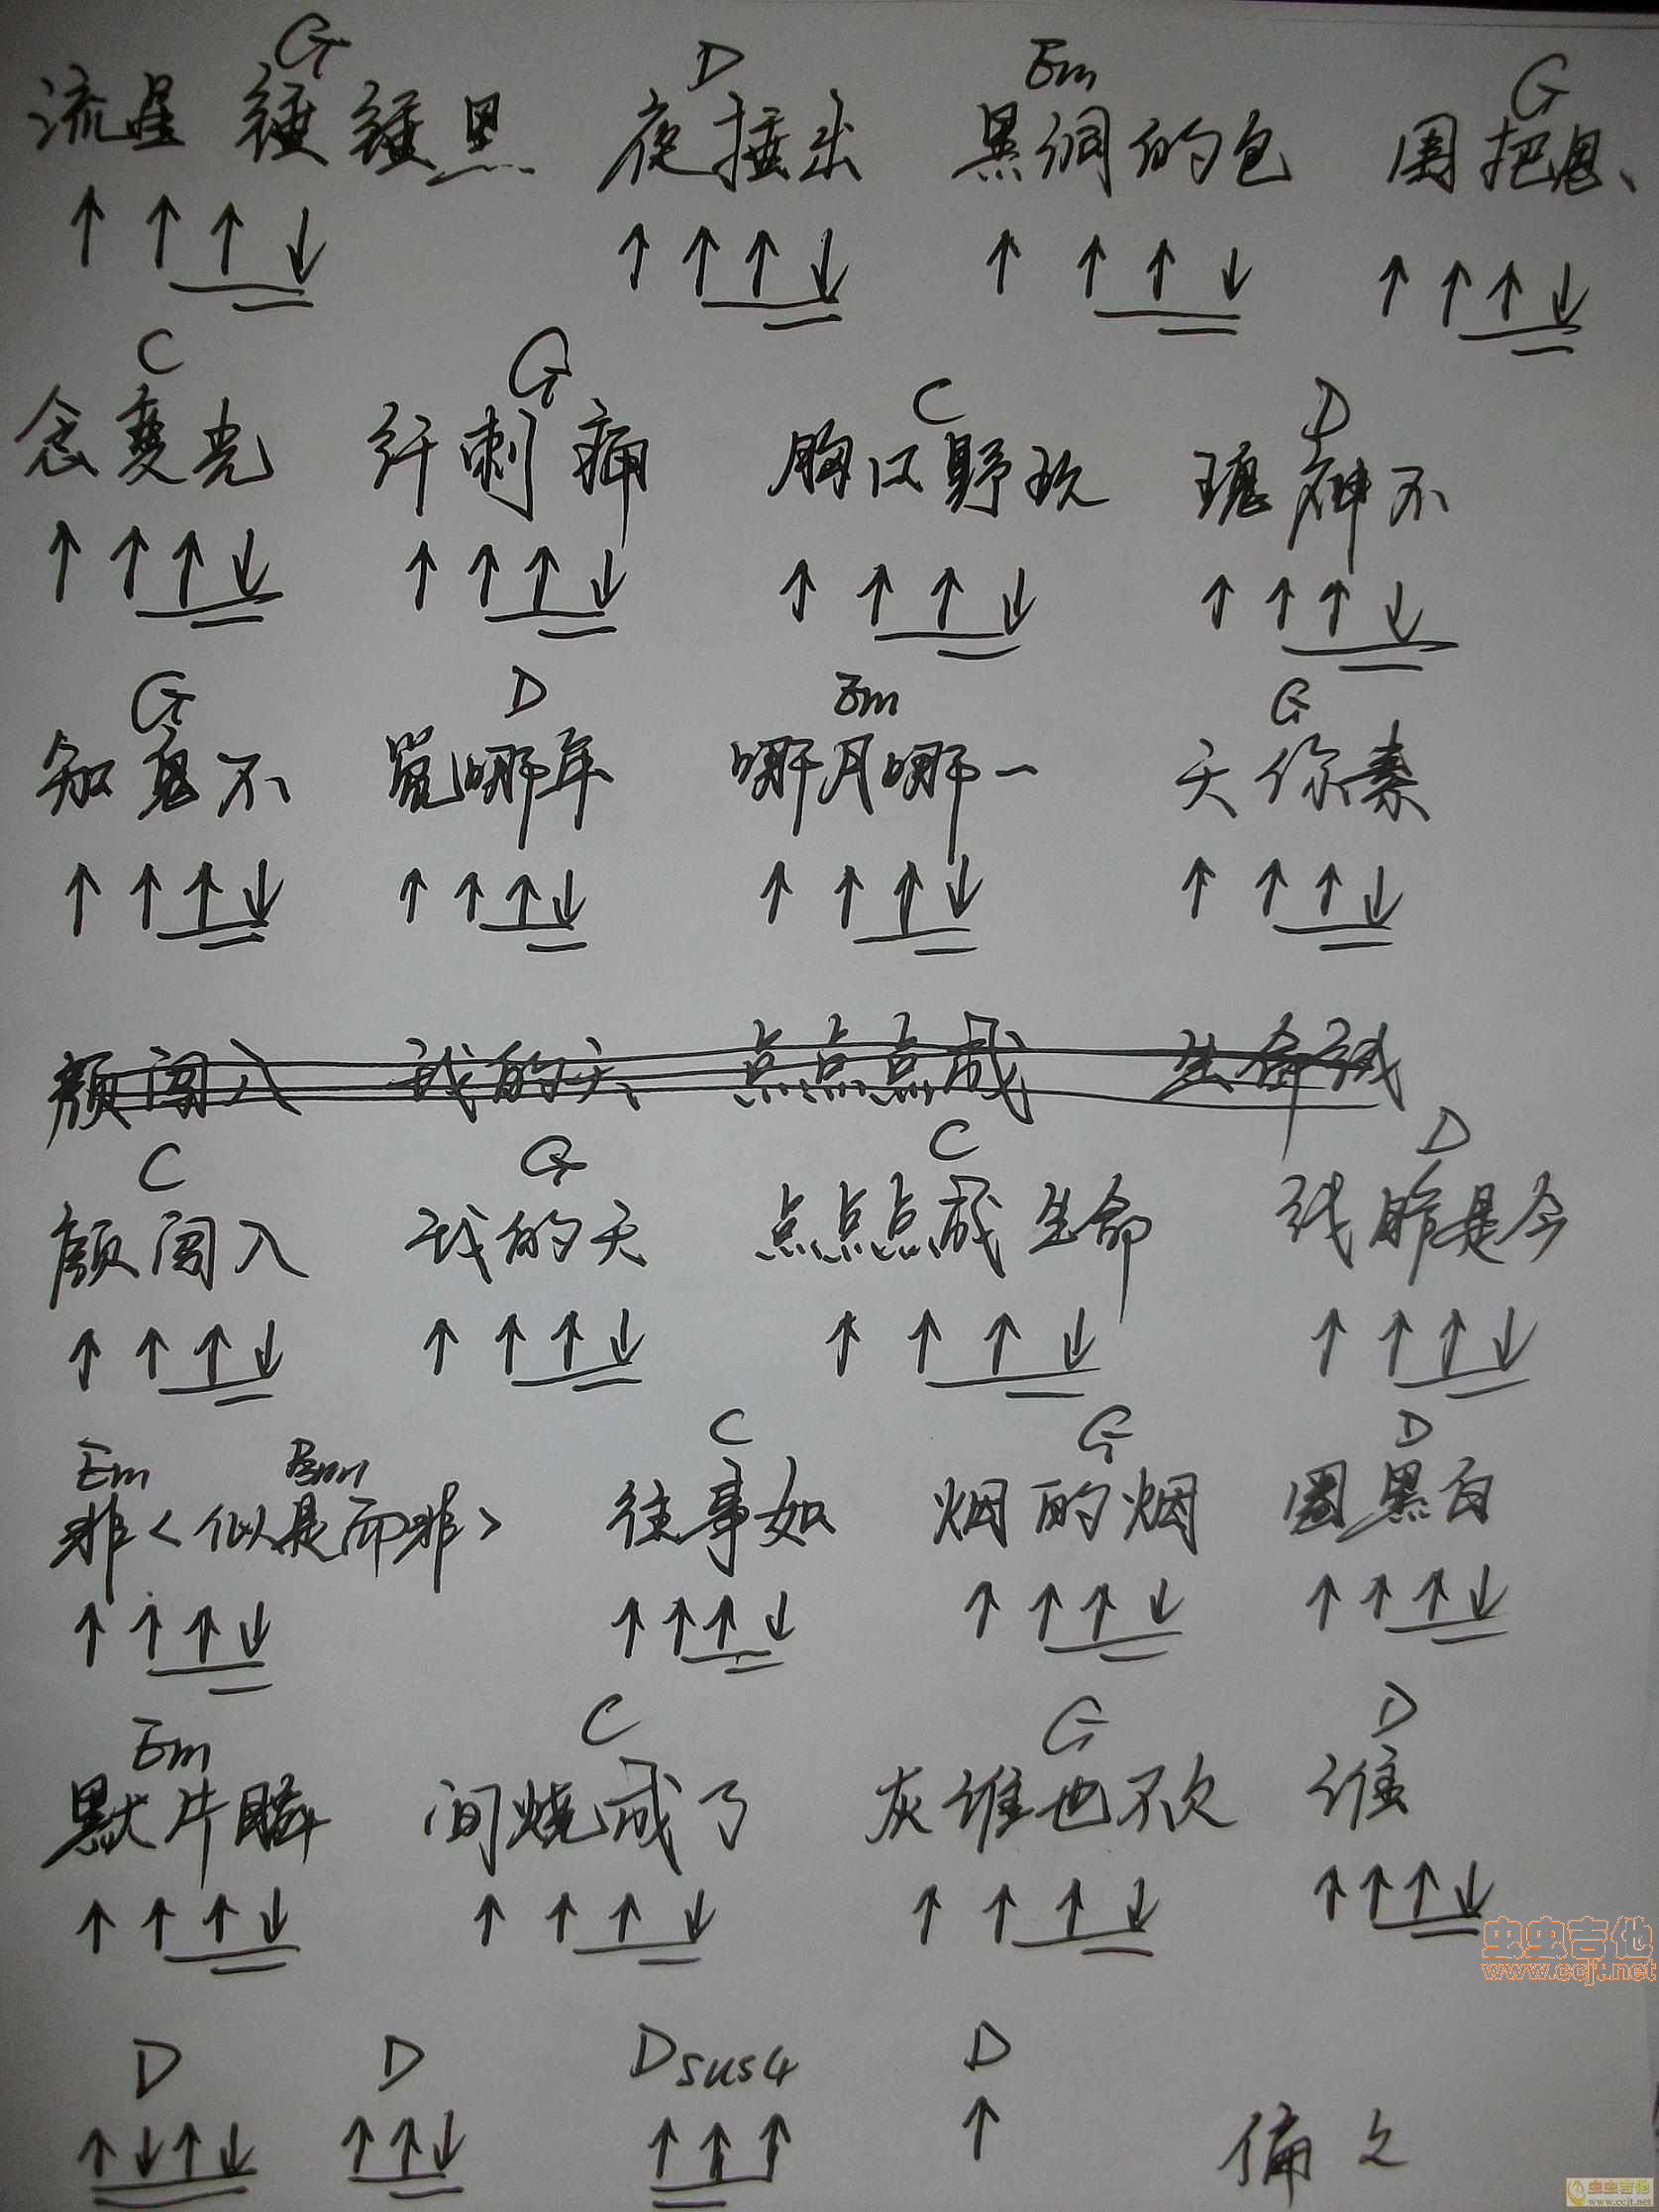 G D Em G
流星 锤锤黑 夜捶出 黑洞的包 围把思、
↑ ↑ ↑ ↓ ↑ ↑ ↑ ↓ ↑ ↑ ↑ ↓ ↑ ↑ ↑ ↓
C G C D
念变光 纤刺痛 胸口野玫 瑰神不
↑ ↑ ↑ ↓ ↑ ↑ ↑ ↓ ↑ ↑ ↑ ↓ ↑ ↑ ↑ ↓
G D Em G
知鬼不 觉哪年 哪月哪一 天你素
↑ ↑ ↑ ↓ ↑ ↑ ↑ ↓ ↑ ↑ ↑ ↓ ↑ ↑ ↑ ↓
颜闯入 我的天 点点点成 生命线
C G C D
颜闯入 我的天 点点点成生命 线昨是今
↑ ↑ ↑ ↓ ↑ ↑ ↑ ↓ ↑ ↑ ↑ ↓ ↑ ↑ ↑ ↓
Em Bm C G D
非<似是而非> 往事如 烟的烟 圈黑白
↑ ↑ ↑ ↓ ↑ ↑ ↑ ↓ ↑ ↑ ↑ ↓ ↑ ↑ ↑ ↓
Em C G D
默片瞬 间烧成了 灰谁也不欠 谁
↑ ↑ ↑ ↓ ↑ ↑ ↑ ↓ ↑ ↑ ↑ ↓ ↑ ↑ ↑ ↓
虫虫吉他
www.ccjt.net
D D Dsus4 D
↑ ↓ ↑ ↓ ↑ ↑ ↓ ↑ ↑ ↑ ↑ 偏之
虫虫吉他
www.ccjt.net